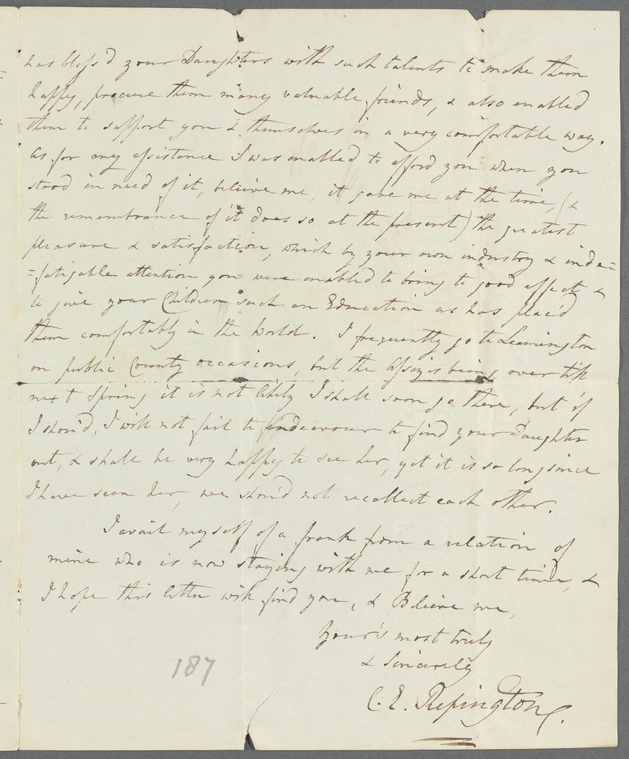 has bless'd your Daughters with such talents to make them
happy, procure them many valuable friends, & also enabled
them to support you & themselves in a very comfortable way.
As for any assistance I was enabled to afford you when you
stood in need of it, beleive me, it gave me at the time, (&
the remembrance of it does so at the present) the greatest
pleasure & satisfaction, which by your own industry & inde=
=fatigable attention you were enabled to bring to good effect, &
to give your Children such an Education as has placed
them comfortably in the World. I frequently go to Leamington
on public County occasions, but the Assizes being over till
next Spring it is not likely I shall soon go there, but if
I should, I will not fail to endeavour to find your Daughter
out, & shall be very happy to see her, yet it is so long since
I have seen her, we should not recollect each other.
I avail myself of a frank from a relation of
mine who is now staying with me for a short time, &
I hope this letter will find you, & Believe me,
Your's most truly
& Sincerely
C. E. Repington
187